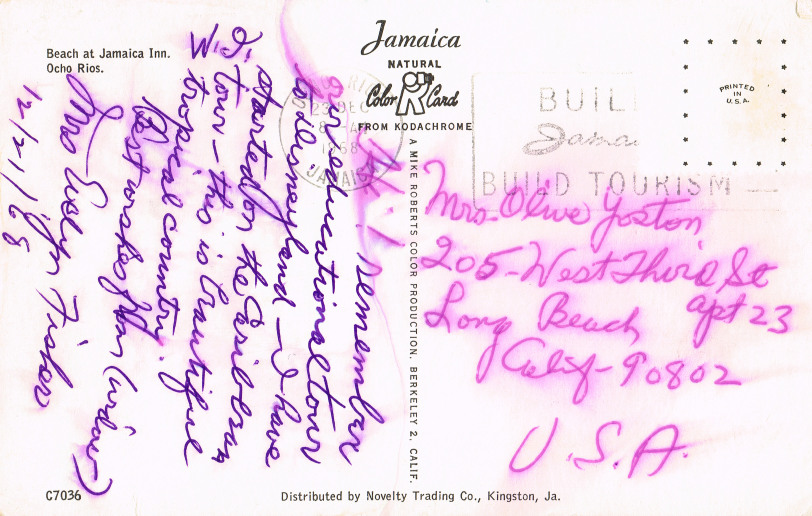 Beach at Jamaica Inn.
Ocho Rios.
Jamaica
NATURAL
Color Card
FROM KODACHROME
A MIKE ROBERTS COLOR PRODUCTION. BERKELEY 2, CALIF.
PRINTED
IN
U.S.A.
OCHO RIOS
23 DEC
1968
JAMAICA
BUIL
Jamai
BUILD TOURISM
Mrs. Olive Yoston
205-West Third St
apt 23
Long Beach
Calif-90802
U.S.A.
Hi. I remember
our educational tour
to disneyland - I have
started on the Caribbean
I. tour - this is beautiful
W. tropical country.
Best wishes from
Mrs Evelyn Fisher
12/21/68
C7036
Distributed by Novelty Trading Co., Kingston, Ja.